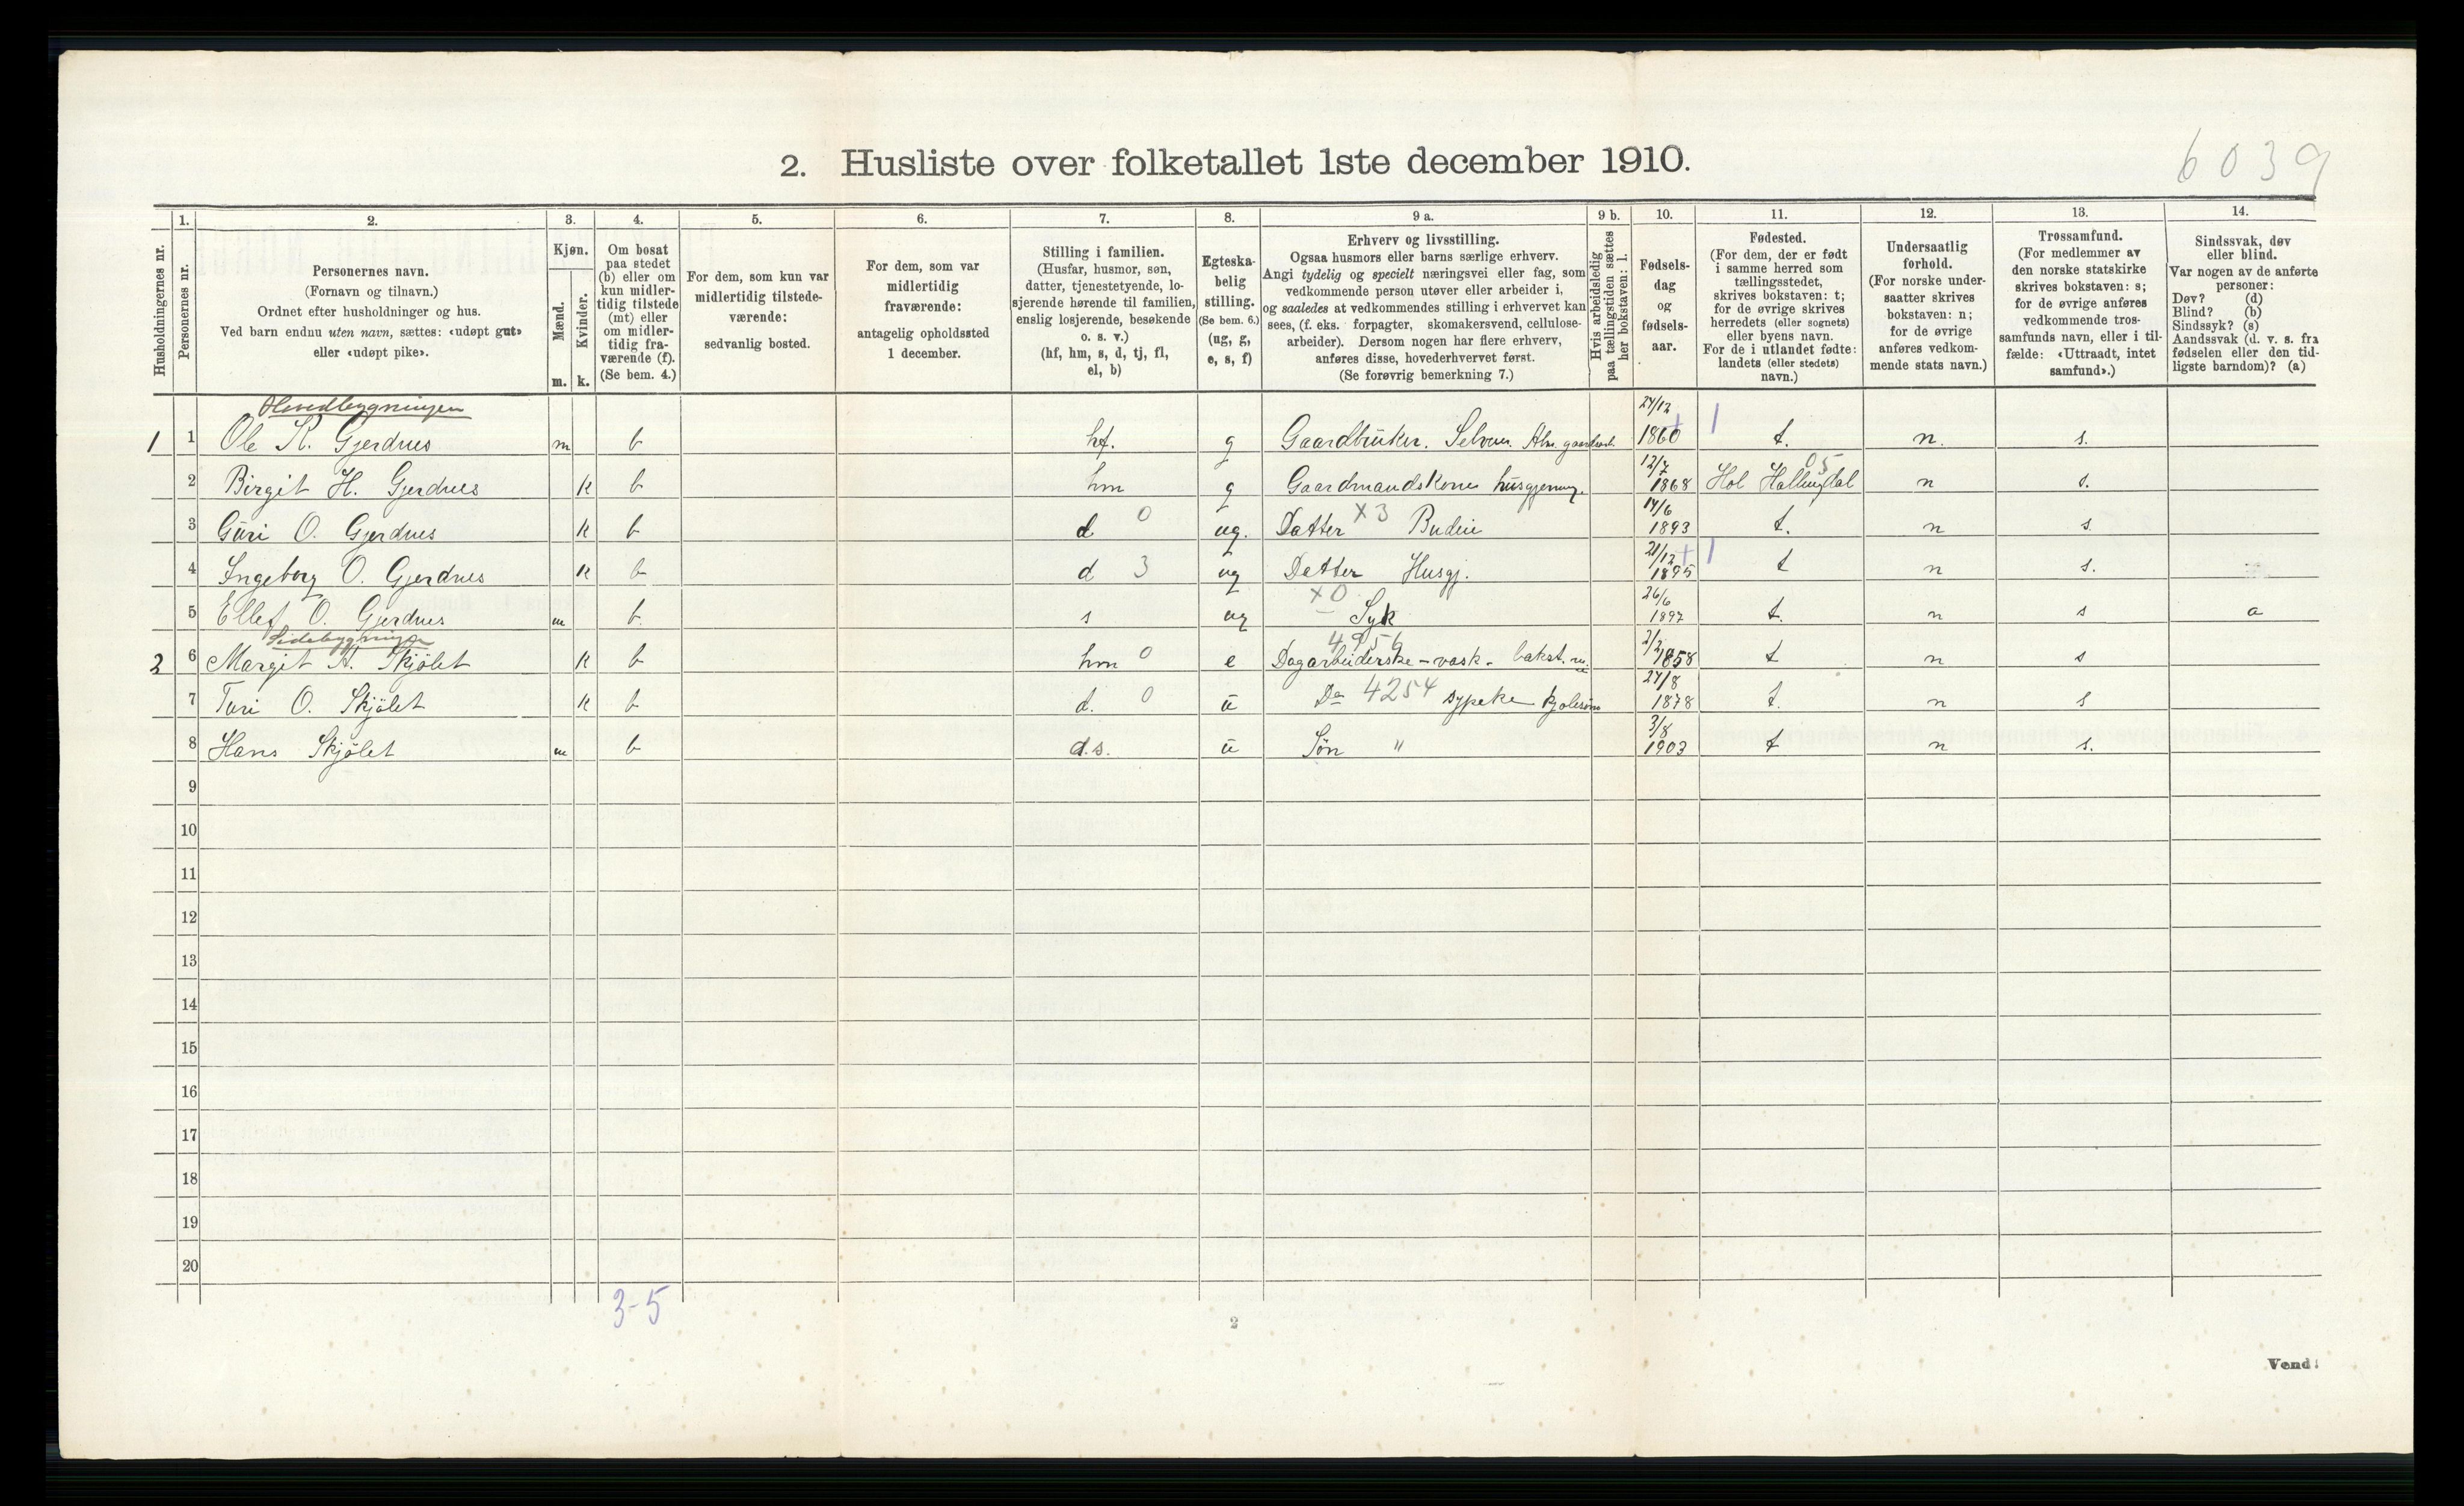 6039
2. Husliste over folketallet 1ste december 1910.
Husholdningernes nr.
1.
Personernes nr.
2.
Personernes navn.
(Fornavn og tilnavn.)
Ordnet efter husholdninger og hus.
Ved barn endnu uten navn, sættes: «udøpt gut»
eller «udøpt pike».
3.
Kjøn.
Mænd.
Kvinder.
m. k.
4.
Om bosat
paa stedet
(b) eller om
kun midler-
tidig tilstede
(mt) eller
om midler-
tidig fra-
værende (f).
(Se bem. 4.)
5.
For dem, som kun var
midlertidig tilstede-
værende:
sedvanlig bosted.
6.
For dem, som var
midlertidig
fraværende:
antagelig opholdssted
1 december.
7.
Stilling i familien.
(Husfar, husmor, søn,
datter, tjenestetyende, lo-
sjerende hørende til familien,
enslig losjerende, besøkende
o. s. v.)
(hf, hm, s, d, tj, fl,
el, b)
8.
Egteska-
belig
stilling.
(Se bem. 6.)
(ug, g,
e, s, f)
9 a.
Erhverv og livsstilling.
Ogsaa husmors eller barns særlige erhverv.
Angi tydelig og specielt næringsvei eller fag, som
vedkommende person utøver eller arbeider i,
og saaledes at vedkommendes stilling i erhvervet kan
sees, (f. eks.: forpagter, skomakersvend, cellulose-
arbeider). Dersom nogen har flere erhverv,
anføres disse, hovederhvervet først.
(Se forøvrig bemerkning 7.)
9 b.
Hvis arbeidsledig
paa tællingstiden sættes
her bokstaven: l.
10.
Fødsels-
dag
og
fødsels-
aar.
11.
Fødested.
(For dem, der er født
i samme herred som
tællingsstedet,
skrives bokstaven: t;
for de øvrige skrives
herredets (eller sognets)
eller byens navn.
For de i utlandet fødte:
landets (eller stedets)
navn.)
12.
Undersaatlig
forhold.
(For norske under-
saatter skrives
bokstaven: n;
for de øvrige
anføres vedkom-
mende stats navn.)
13.
Trossamfund.
(For medlemmer av
den norske statskirke
skrives bokstaven: s;
for de øvrige anføres
vedkommende tros-
samfunds navn, eller i til-
fælde: «Uttraadt, intet
samfund».)
14.
Sindssvak, døv
eller blind.
Var nogen av de anførte
personer:
Døv? (d)
Blind? (b)
Sindssyk? (s)
Aandssvak (d. v. s. fra
fødselen eller den tid-
ligste barndom)? (a)
Hovedbygningen
1 1 Ole K. Gjerdnes m b hf. g Gaardbruker. Selveier. 24/12 1860 t. n. s.
2 Birgit H. Gjerdnes k b hm g Gaardmandskone husgjerning. 12/7 1868 Hol Hallingdal 05 n s.
3 Guri O. Gjerdnes k b d 0 ug. Datter x3 Budeie 14/6 1893 t. n s
4 Ingeborg O. Gjerdnes k b d 3 ug Datter Husgj. 21/12 1895 t n s.
5 Ellef O. Gjerdnes m b. s ug x0 – Syk 26/6 1897 t. n s a
Sidebygningen
2 6 Margit A. Skjölet k b hm 0 e 4956 Dagarbeiderske – vask – bakst. 2/2 1858 t n s
7 Turi O. Skjölet k b d. 0 u Do 4254 sypike kjolesöm 27/8 1878 t. n s
8 Hans Skjölet m b d.s. u Søn " 3/8 1903 t n s.
9
10
11
12
13
14
15
16
17
18
19
20
3-5
2
Vend!